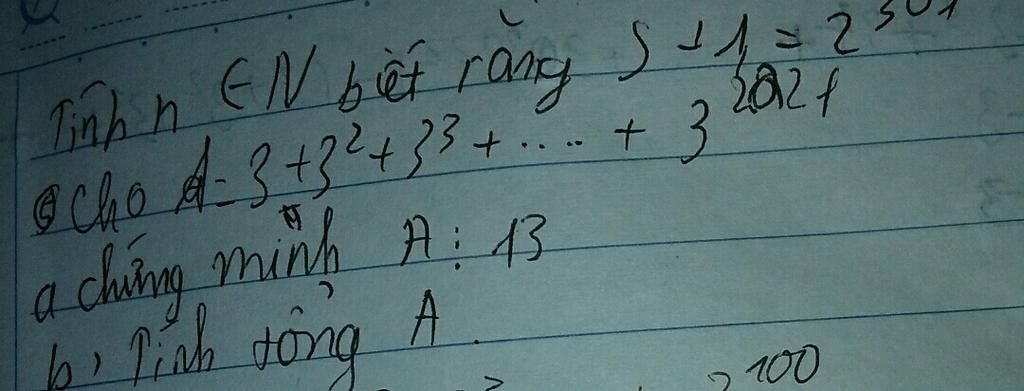 Tính n ∈ N biết rằng S + 1 = 2^501
Cho A = 3 + 3^2 + 3^3 + .... + 3^2021
a chứng minh A ⋮ 13
b, Tính tổng A.
100